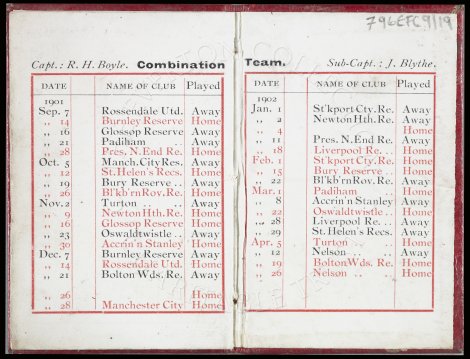 796EFC9/19
Capt.: R. H. Boyle. Combination Team. Sub-Capt.: J. Blythe.
DATE NAME OF CLUB Played
1901
Sep. 7 Rossendale Utd. Away
,, 14 Burnley Reserve Home
,, 16 Glossop Reserve Away
,, 21 Padiham .. Away
,, 28 Pres. N. End Re. Home
Oct. 5 Manch. City Res. Away
,, 12 St. Helen's Recs. Home
,, 19 Bury Reserve .. Away
,, 26 Bl'kb'rn Rov. Re. Home
Nov. 2 Turton .. .. Away
,, 9 Newton Hth. Re. Home
,, 16 Glossop Reserve Home
,, 23 Oswaldtwistle .. Away
,, 30 Accrin'n Stanley Home
Dec. 7 Burnley Reserve Away
,, 14 Rossendale Utd. Home
,, 21 Bolton Wds. Re. Away
,, 26 Home
,, 28 Manchester City Home
DATE NAME OF CLUB Played
1902
Jan. 1 St'kport Cty. Re. Away
,, 2 Newton Hth. Re. Away
,, 4 Home
,, 11 Pres. N. End Re. Away
,, 18 Liverpool Re. .. Home
Feb. 1 St'kport Cty. Re. Home
,, 15 Bury Reserve .. Home
,, 22 Bl'kb'n Rov. Re. Away
Mar. 1 Padiham .. Home
,, 8 Accrin'n Stanley Away
,, 22 Oswaldtwistle .. Home
,, 28 Liverpool Re. .. Away
,, 29 St. Helen's Recs. Away
Apr. 5 Turton .. .. Home
,, 12 Nelson .. .. Away
,, 19 Bolton Wds. Re. Home
,, 26 Nelson .. .. Home